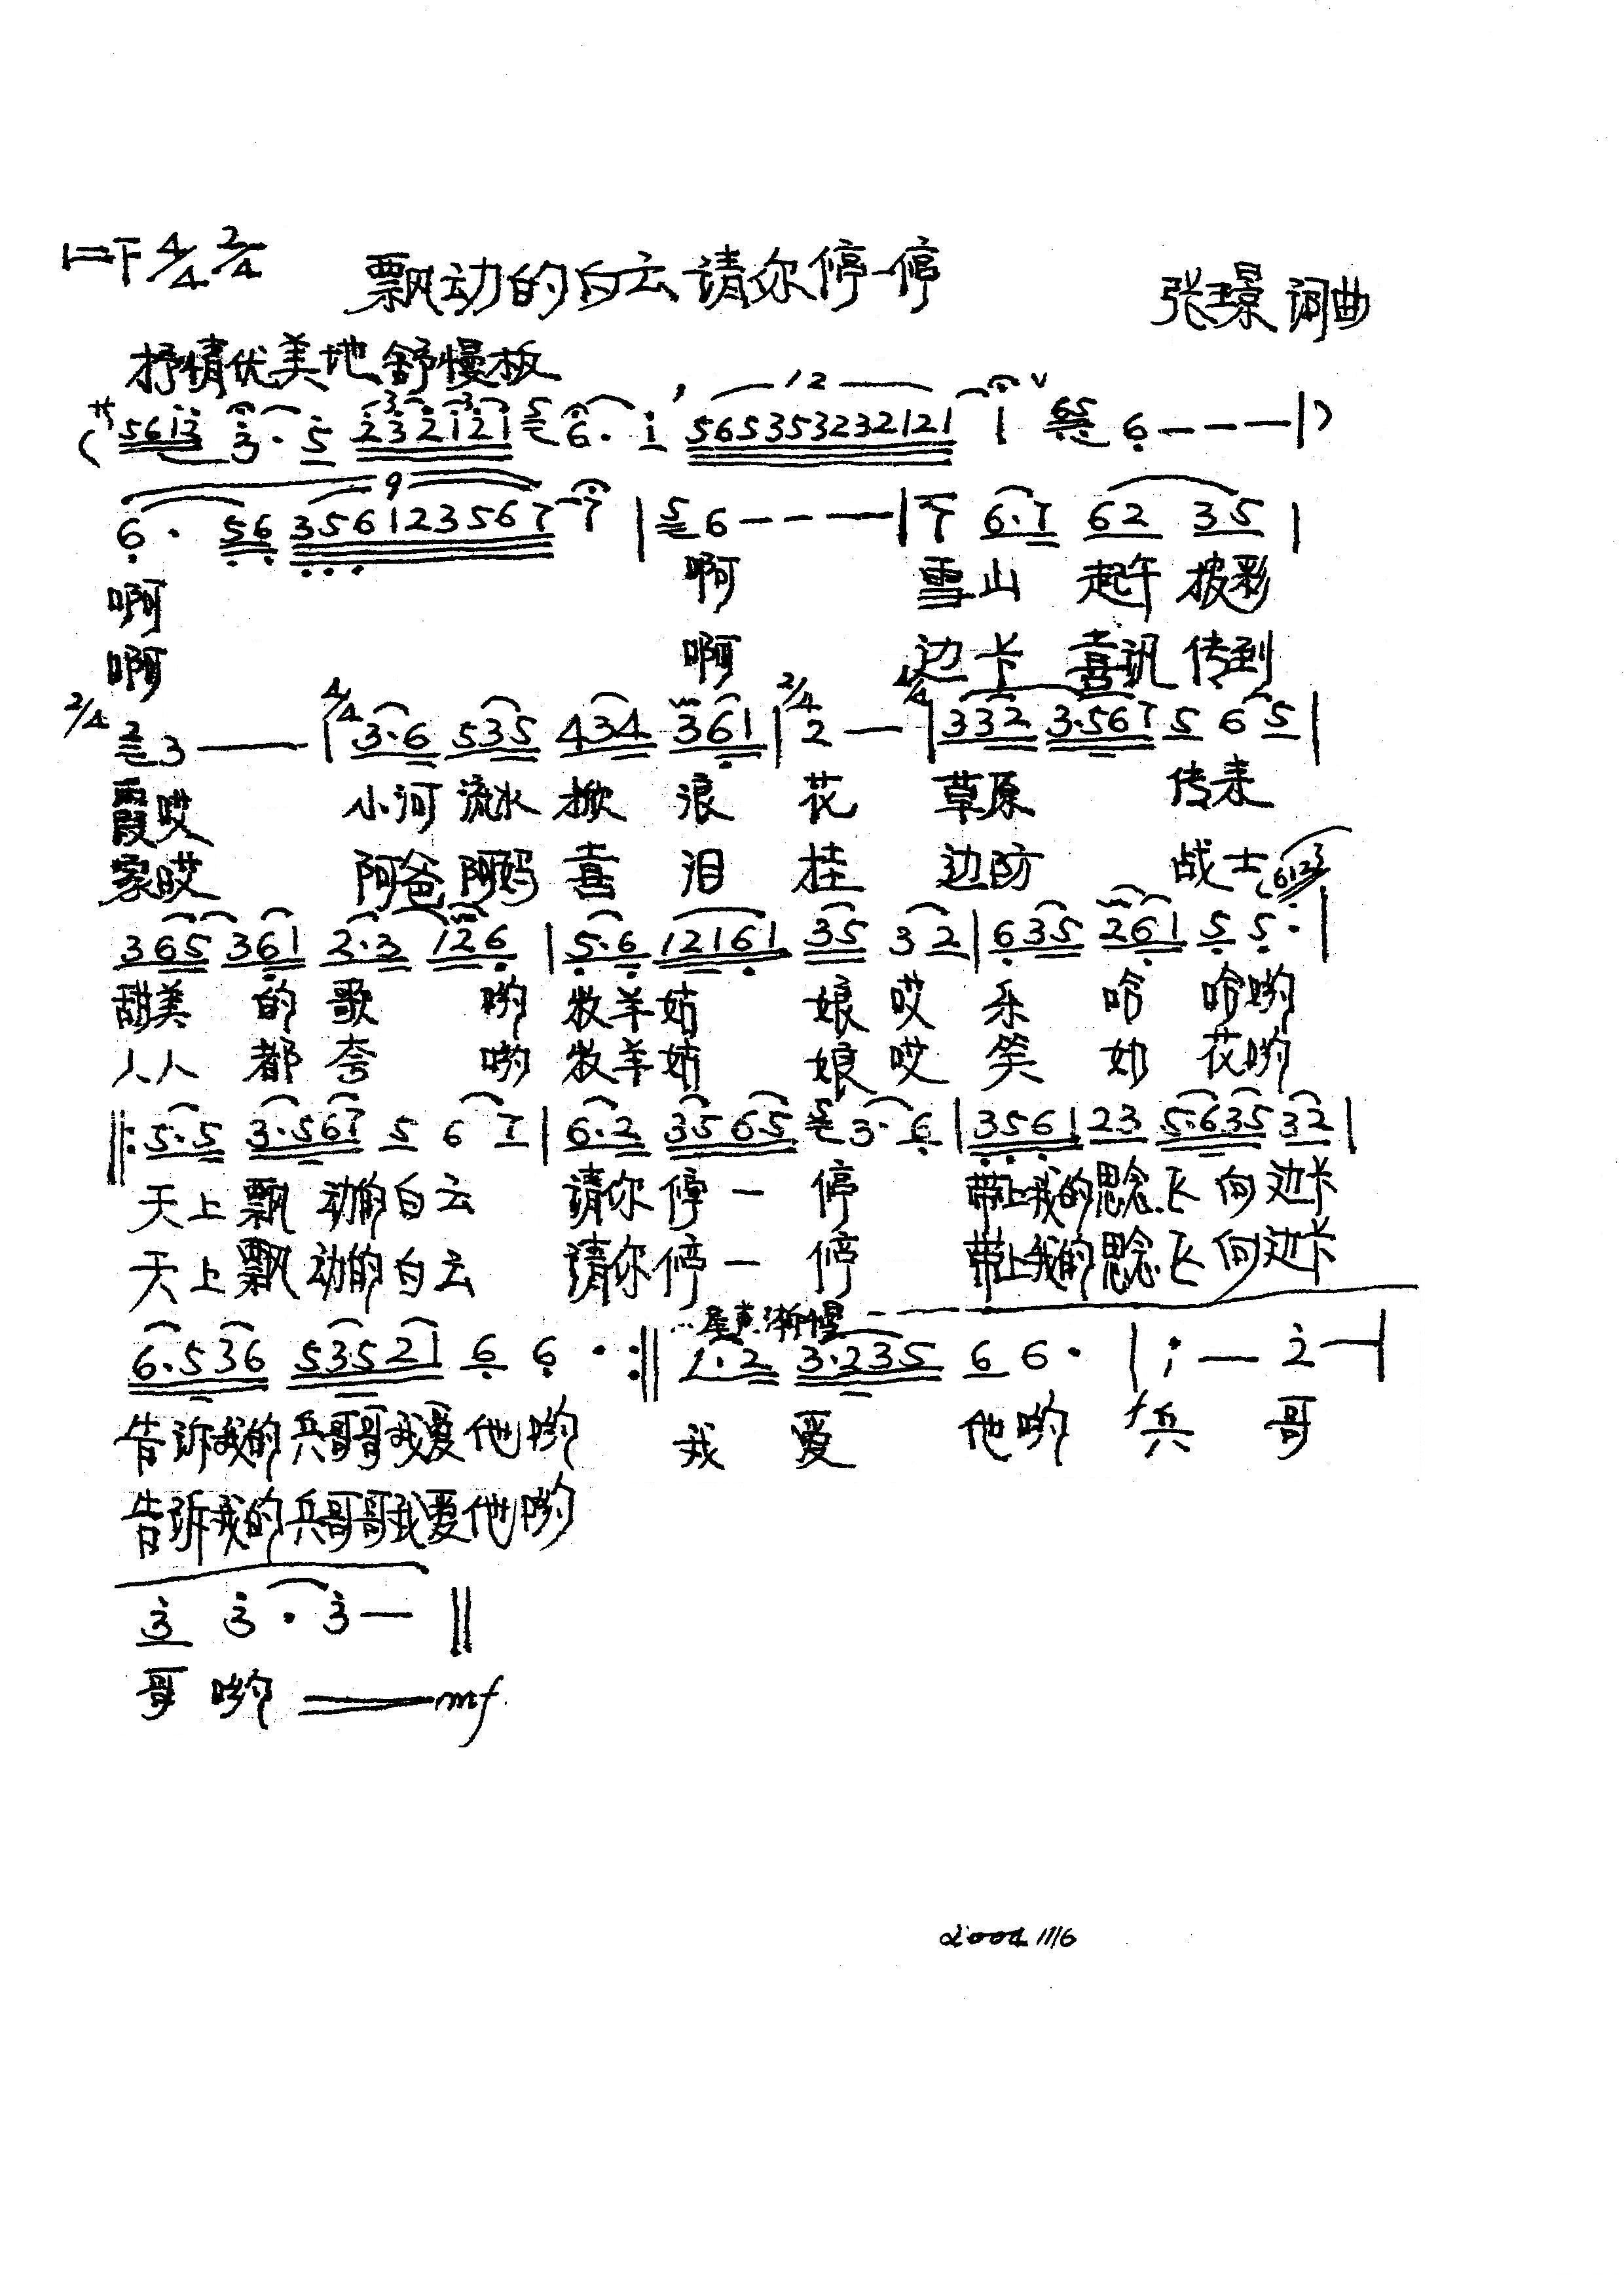 1=F 4/4 2/4
飘动的白云请你停一停
张璟 词曲
抒情优美地 舒慢板
(5612 3·5 232121 5 6·1 565353232121 1 65 6---|)
6· 56 356123567 7 |5 6----|7 6·7 62 35|
啊 啊 雪山 起午 披彩
啊 啊 边卡 喜讯 传到
2/4 2 3—— |4/4 3·6 535 434 361|2/4 2 — 4/4|332 3·567 5 6 5|
霞哎 小河 流水 掀 浪 花 草原 传来
家哎 阿爸 阿妈 喜 泪 挂 边防 战士 (6123
365 361 2·3 126 |5·6 12161 35 32|635 261 5 5·|
甜美 的 歌 哟 牧羊姑 娘 哎 乐 哈 哈哟
人人 都 夸 哟 牧羊姑 娘 哎 笑 如 花哟
‖:5·5 3·567 5 6 7|6·2 3565 5 3·6|3561 23 5·635 32|
天上飘 动的白云 请你停一 停 带上我的思念飞向边卡
天上飘 动的白云 请你停一 停 带上我的思念飞向边卡
尾声渐慢
6·536 53521 6 6 ·:‖ 1·2 3·235 6 6· |1 — 2 —|
告诉我的兵哥哥我爱他哟 我 爱 他哟 兵 哥
告诉我的兵哥哥我爱他哟
3 3·3— ‖
哥 哟 mf
2004 11/6